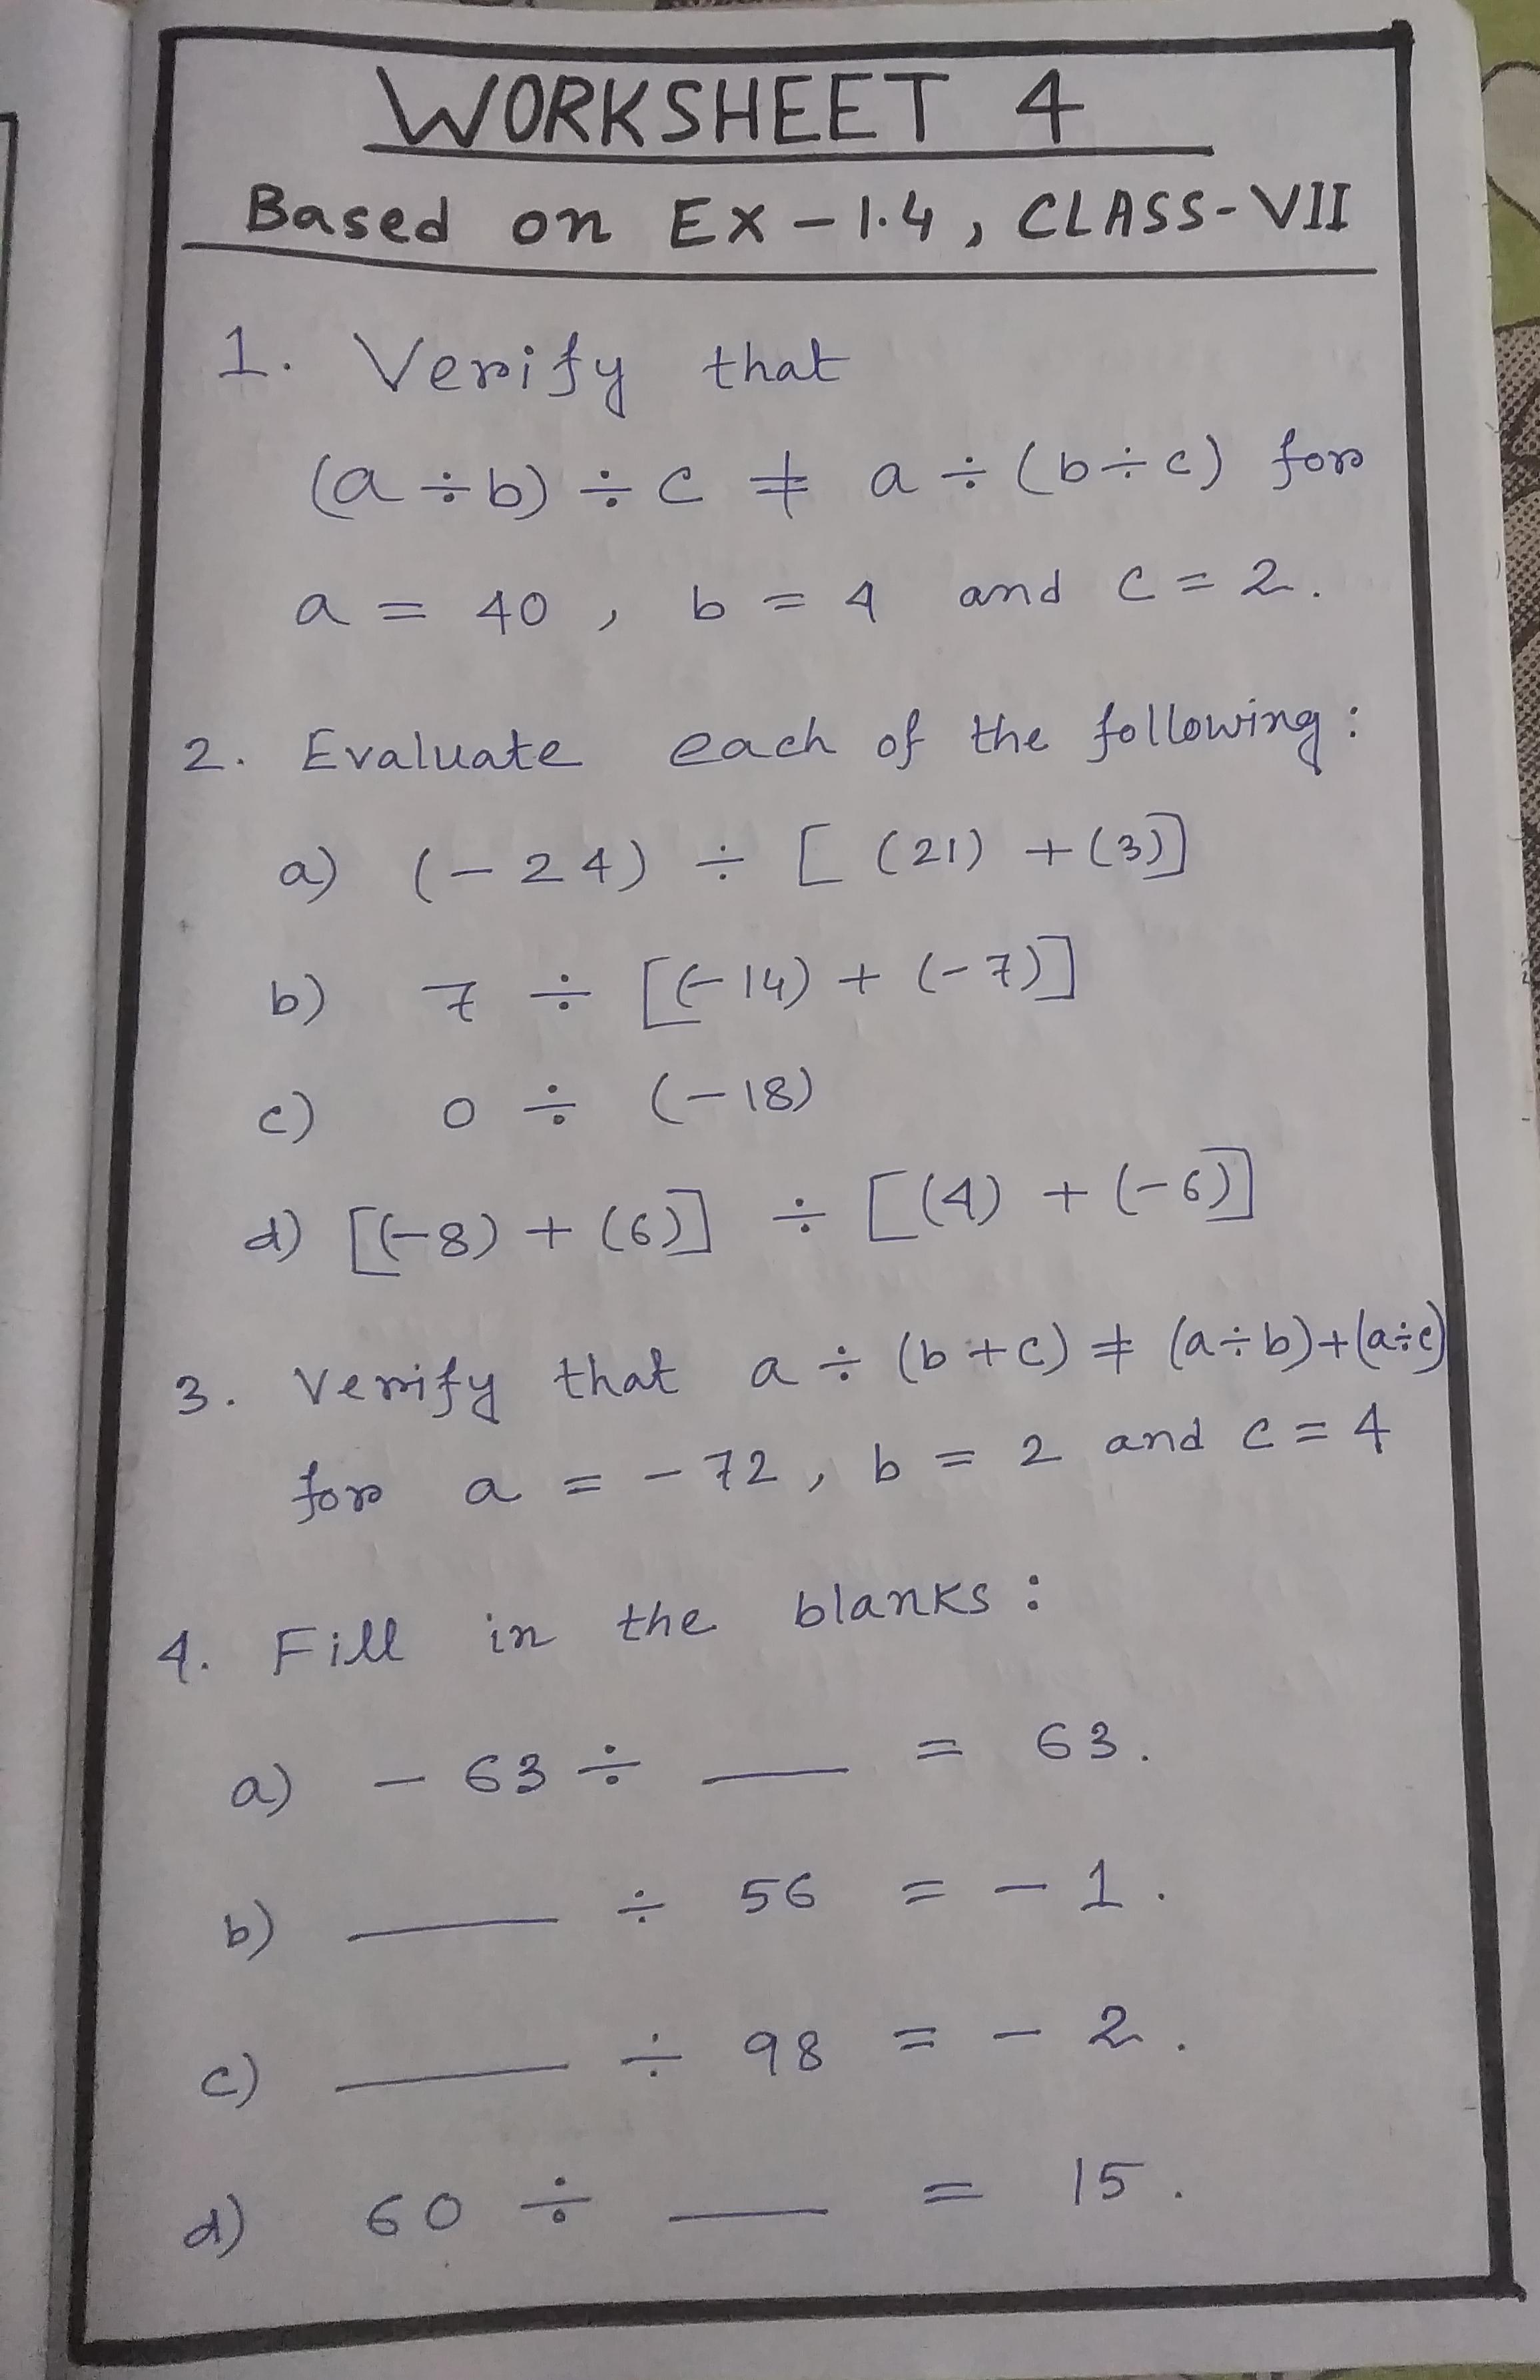 WORKSHEET 4
Based on EX - 1.4, CLASS-VII
1. Verify that
(a ÷ b) ÷ c ≠ a ÷ (b ÷ c) for
a = 40, b = 4 and c = 2.
2. Evaluate each of the following:
a) (-24) ÷ [(21) + (3)]
b) 7 ÷ [(-14) + (-7)]
c) 0 ÷ (-18)
d) [(-8) + (6)] ÷ [(4) + (-6)]
3. Verify that a ÷ (b + c) ≠ (a ÷ b) + (a ÷ c)
for a = -72, b = 2 and c = 4
4. Fill in the blanks:
a) - 63 ÷ ____ = 63.
b) ____ ÷ 56 = - 1.
c) ____ ÷ 98 = - 2.
d) 60 ÷ ____ = 15.